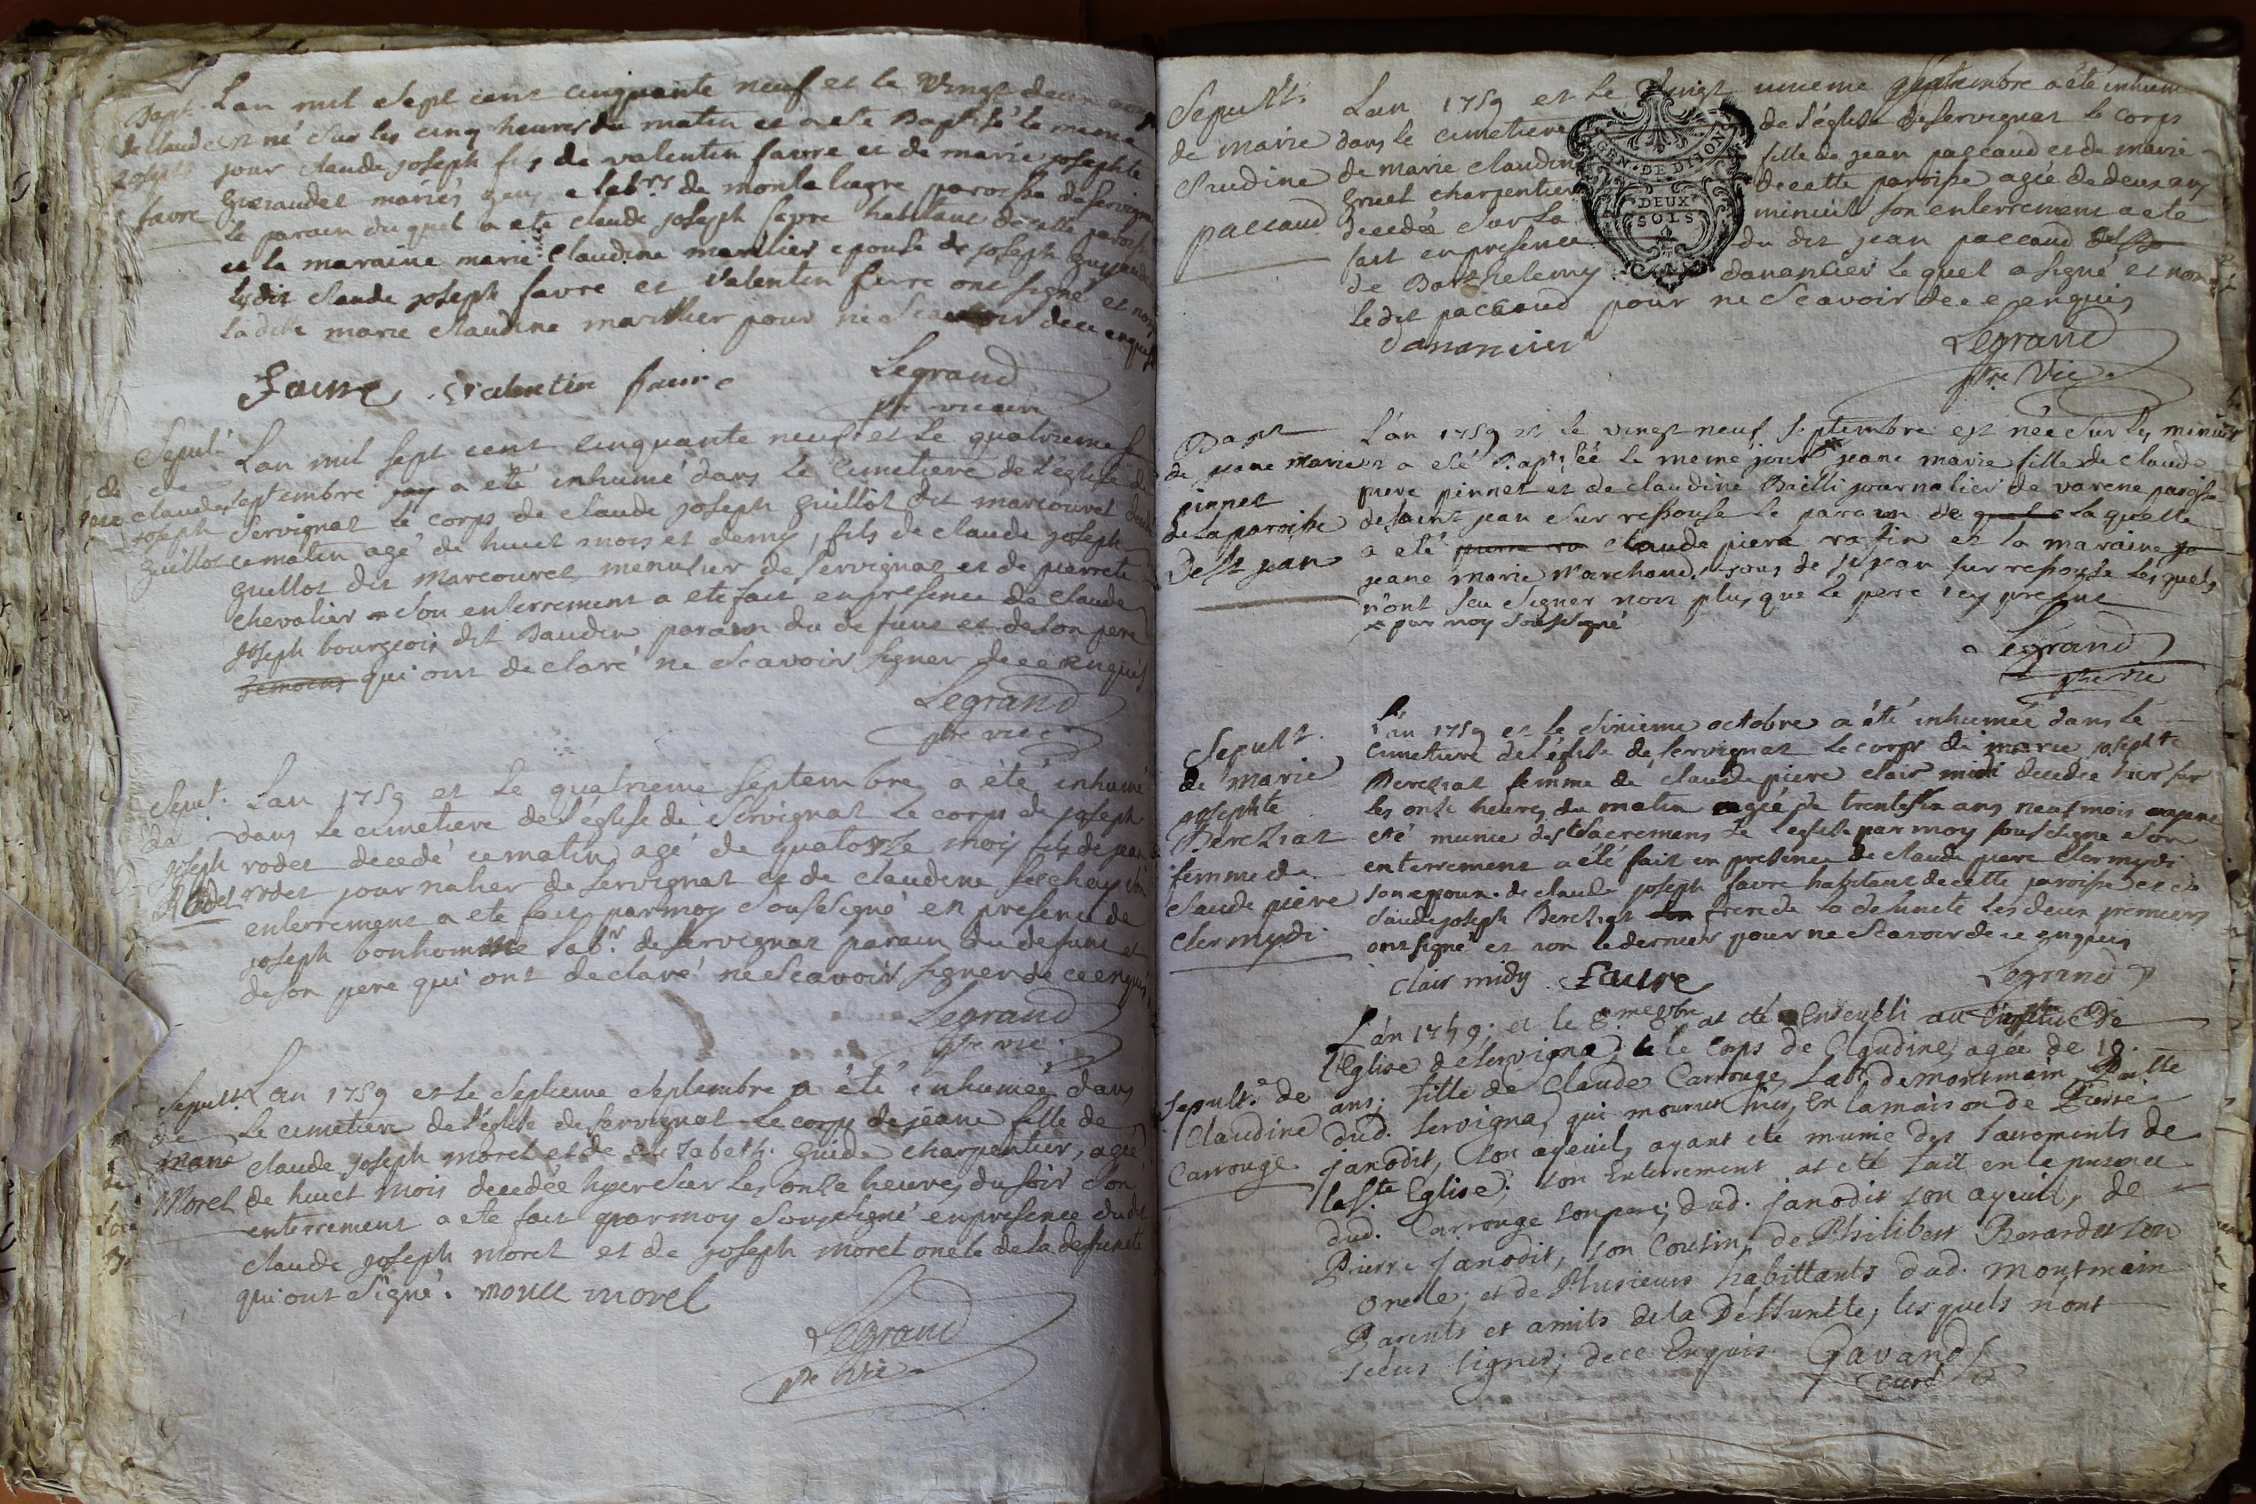 Bapt.
de Claude
joseph
favre
L'an mil sept cent cinquante neuf et le vingt deux
est né sur les cinq heures du matin et a eté Baptisé le meme
jour claude joseph fils de valentin favre et de marie josephte
mariés gens labrs de montalugre paroisse de servignat
le parain du quel a eté claude joseph favre habitant de cette paroisse
et la maraine marie claudine marillier epouse de joseph
ledit claude joseph favre et valentin favre ont signé et non
la dite marie claudine marillier pour ne scavoir de ce enquise
Favre valentin favre Legrand
ptre vicair
Sepul.
de
claude
joseph
guillot
L'an mil sept cent cinquante neuf et le quatrieme
septembre a eté inhumé dans le cimetiere de l'eglise de
Servignat le corps de claude joseph guillot dit marcouret decedé
ce matin agé de huit mois et demy, fils de claude joseph
guillot dit marcouret menusier de servignat et de pierrete
chevalier son enterrement a eté fait en presence de claude
joseph bourgeois dit Baudin parain du defunt et de son pere
temoins qui ont declaré ne scavoir signer de ce enquis
Legrand
ptre vic
Sepul.
de
joseph
Rodet
L'an 1759 et le quatrieme septembre a été inhumé
dans le cimetiere de l'eglise de Servignat le corps de joseph
rodet decedé ce matin agé de quatorze mois fils de jean
rodet journalier de servignat et de claudine
enterrement a eté fait par moy soussigné en presence de
joseph bonhomme labr. de servignat parain du defunt et
de son pere qui ont declaré ne scavoir signer de ce enquis
Legrand
ptre vic
Sepult.
de
jeane
Morel
L'an 1759 et le septieme septembre a été inhumeé dans
le cimetiere de l'eglise de servignat le corps de jeane fille de
claude joseph morel et de elizabeth guide charpentier, agée
de huit mois decedée hyer sur les onze heures du soir son
enterrement a eté fait par moy soussigné en presence dudit
claude joseph morel et de joseph morel oncle de la deffuncte
qui ont signé. morel morel
Legrand
ptre vic
Sepult.
de marie
claudine
paccaud
L'an 1759 et le vingt unieme septembre a eté inhumé
dans le cimetiere de l'église de servignat le corps
de marie claudine fille de jean paccaud et de marie
gruel charpentier de cette paroisse agée de deux ans
decedée sur la minuit son enterrement a eté
fait en presence du dit jean paccaud
de Barthelemy danancier le quel a signé et non
ledit paccaud pour ne scavoir de ce enquis
danancier Legrand
ptre Vic
GEN · DE DIJON
DEUX
SOLS
Bapt
de jeane marie
pinnet
de la paroisse
de st jean
L'an 1759 et le vingt neuf septembre est née sur les minuit
et a eté baptisée le meme jour jeane marie fille de claude
piere pinnet et de claudine Bailli journalier de varene paroisse
de saint jean sur ressouse le parain de laquelle
a eté claude piere rafin et la maraine
jeane marie marchand, tous de st jean sur ressouse lesquels
n'ont scu signer non plus que le pere icy present
x par moy soussigné
Legrand
ptre vic
Sepult.
de marie
josephte
Berchiat
femme de
claude piere
clermydi
L'an 1759 et le sixieme octobre a été inhumée dans le
cimetiere de l'église de servignat le corps de marie josephte
Berchiat femme de claude piere clair midi decedée hier sur
les onze heures du matin agée de trente six ans neuf mois ayant
eté munie des sacremens de l'eglise par moy soussigné son
enterrement a été fait en presence de claude piere Clermydi
son epoux de claude joseph favre habitant de cette paroisse et de
claude joseph Berchiat frere de la defuncte les deux premiers
ont signé et non le dernier pour ne scavoir de ce enquis
Clair midy Favre Legrand
Sepult.e de
Claudine
Carrouge
L'an 1759. et le 8.me 8bre at été Enseveli au Cimetiere de
l'Eglise de Servigna, le Corps de Claudine, agée de 18.
ans. fille de Claude Carrouge, Labr. de montmain
dud. Servigna, qui mourut hier, En la maison de Pierre
janodit, son ayeuil, ayant été munie des sacrements de
la S.te Eglise; son Enterrement at eté fait en la presence
dud. Carrouge son pere; dud. janodit son ayeuil, de
Pierre janodit, son Cousin, de Philibert Renardet son
oncle; et de Plusieurs habittants dud. montmain
Parents et amits de la Deffuncte; lesquels n'ont
scéus signer; de ce Enquis. Gavand
curé